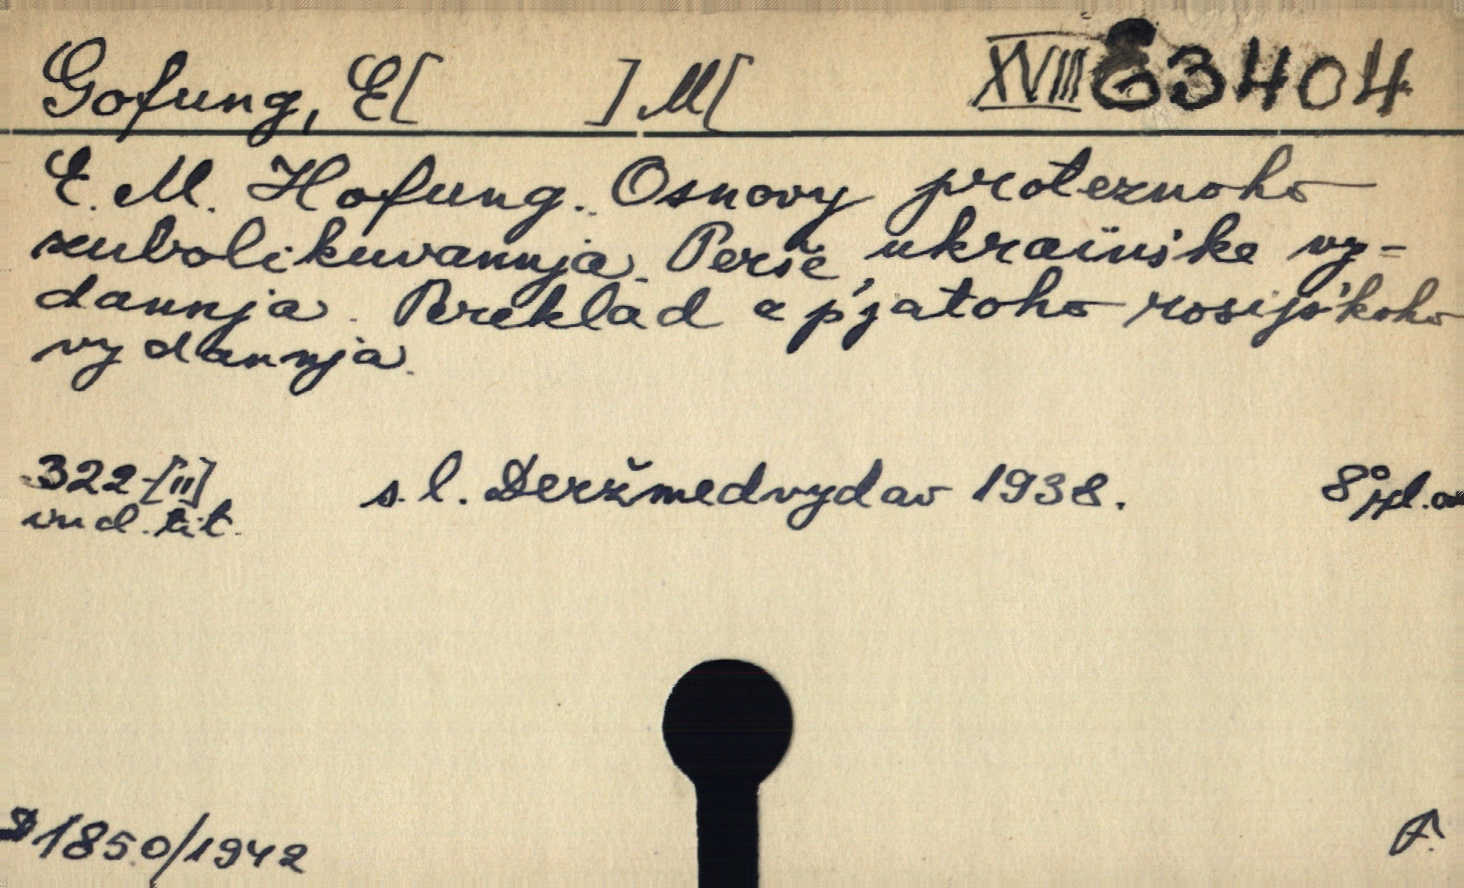 Gofung, E[ ] M[ XVIII E 3404
E. M. Hofung. Osnovy proteznoho
zubolikuvannja. Perše ukraïns'ke vy=
dannja. Pereklad z p'jatoho rosijs'koho
vydannja.
322-[II] s. l. Deržmedvydav 1938. 8°
incl. tit.
D 1850/1942